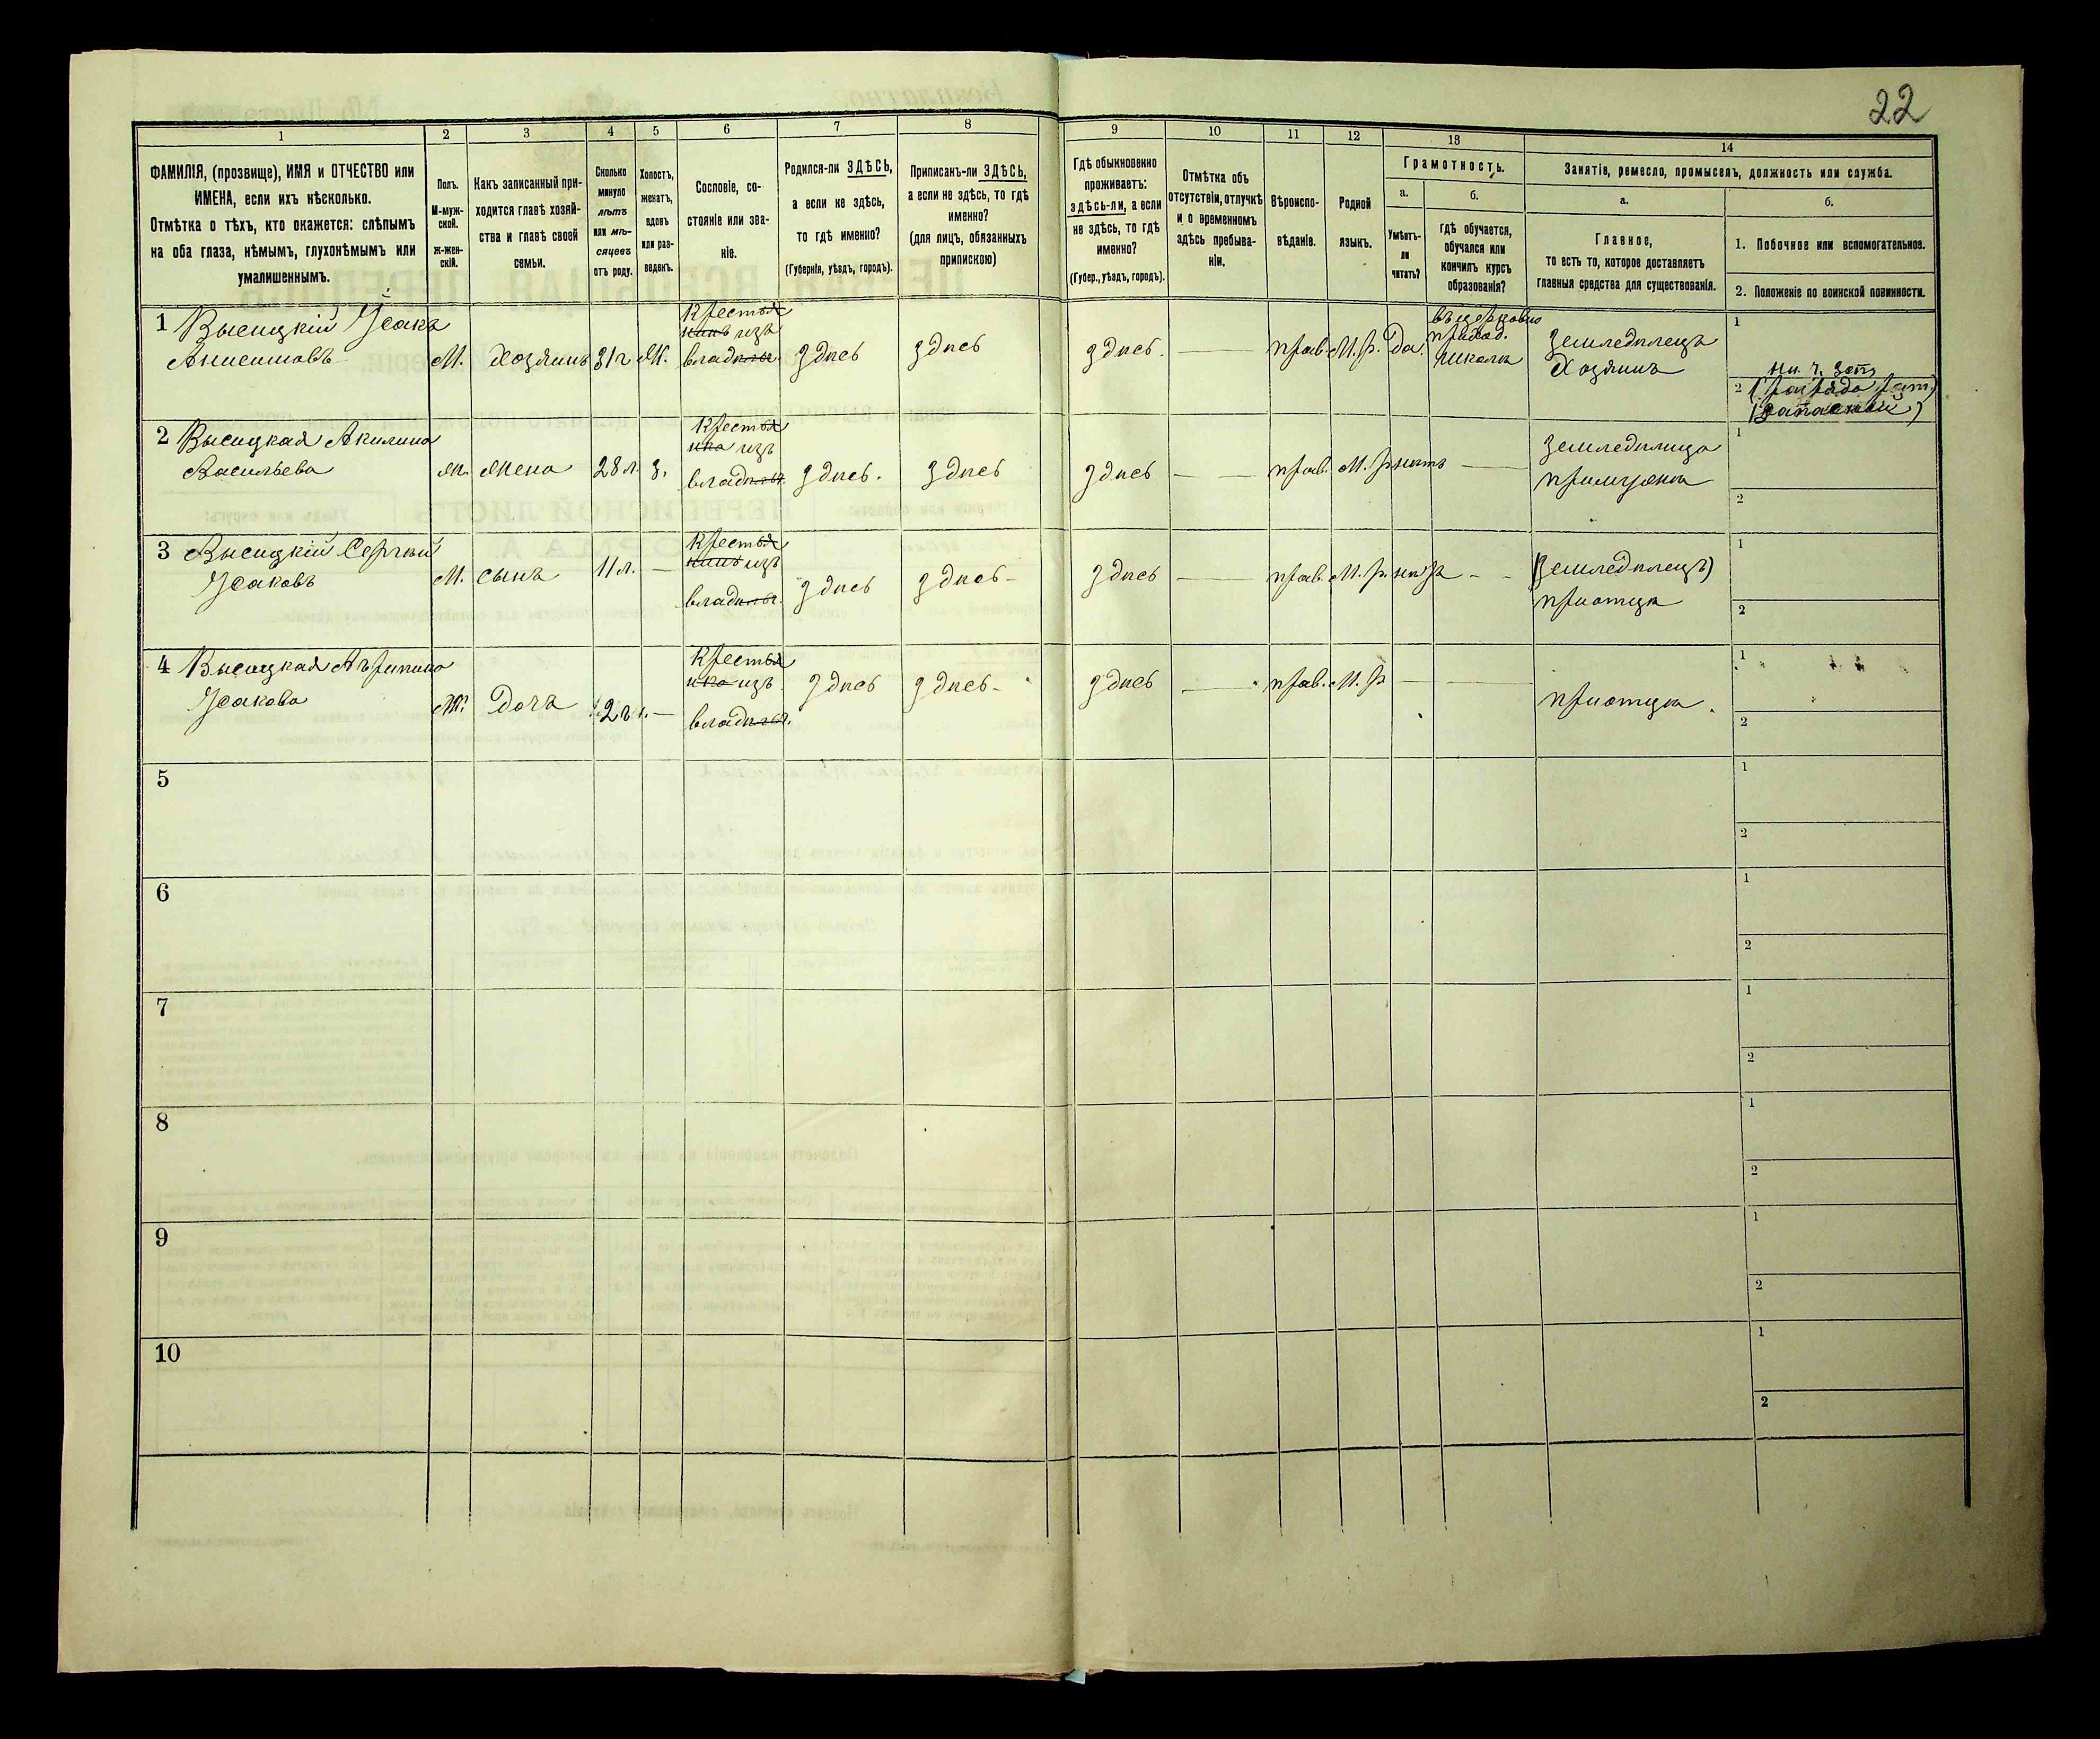 22
1 2 3 4 5 6 7 8 9 10 11 12 13 14
ФАМИЛІЯ, (прозвище), ИМЯ и ОТЧЕСТВО или
ИМЕНА, если ихъ нѣсколько.
Отмѣтка о тѣхъ, кто окажется: слѣпымъ
на оба глаза, нѣмымъ, глухонѣмымъ или
умалишеннымъ.
Полъ.
М-муж-
ской.
ж-жен-
скій.
Какъ записанный при-
ходится главѣ хозяй-
ства и главѣ своей
семьи.
Сколько
минуло
лѣтъ
или мѣ-
сяцевъ
отъ роду.
Холостъ,
женатъ,
вдовъ
или раз-
веденъ.
Сословіе, со-
стояніе или зва-
ніе.
Родился-ли ЗДѢСЬ,
а если не здѣсь,
то гдѣ именно?
(Губернія, уѣздъ, городъ).
Приписанъ-ли ЗДѢСЬ,
а если не здѣсь, то гдѣ
именно?
(для лицъ, обязанныхъ
припискою)
Гдѣ обыкновенно
проживаетъ:
здѣсь-ли, а если
не здѣсь, то гдѣ
именно?
(Губер., уѣздъ, городъ).
Отмѣтка объ
отсутствіи, отлучкѣ
и о временномъ
здѣсь пребыва-
ніи.
Вѣроиспо-
вѣданіе.
Родной
языкъ.
Грамотность.
а.
Умѣетъ-
ли
читать?
б.
гдѣ обучается,
обучался или
кончилъ курсъ
образованія?
Занятіе, ремесло, промыселъ, должность или служба.
а.
Главное,
то есть то, которое доставляетъ
главныя средства для существованія.
б.
1. Побочное или вспомогательное.
2. Положеніе по воинской повинности.
1 Высицкій Исакъ
Анисимовъ
М. Хозяинъ 31 г. Ж.
Крестья
нинъ изъ
владѣльч.
здѣсь здѣсь здѣсь. прав. М. р. Да.
въ церковно
приход.
школѣ
Земледѣлецъ
Хозяинъ
1
2
2 Высицкая Акилина
Васильева
Ж. Жена 28 л. З.
Крестья
нка изъ
владѣльч.
здѣсь. здѣсь здѣсь прав. М. р. нѣтъ
Земледѣлица
при мужѣ
1
2
3 Высицкій Сергѣй
Исаковъ
М. сынъ 11 л.
Крестья
нинъ изъ
владѣльч.
здѣсь здѣсь здѣсь прав. М. р.
(Земледѣлецъ)
при отцѣ
1
2
4 Высицкая
Исакова
Ж. Дочь 2 г.
Крестья
нка изъ
владѣльч.
здѣсь здѣсь здѣсь прав. М. р.
при отцѣ.
1
2
5
1
2
6
1
2
7
1
2
8
1
2
9
1
2
10
1
2